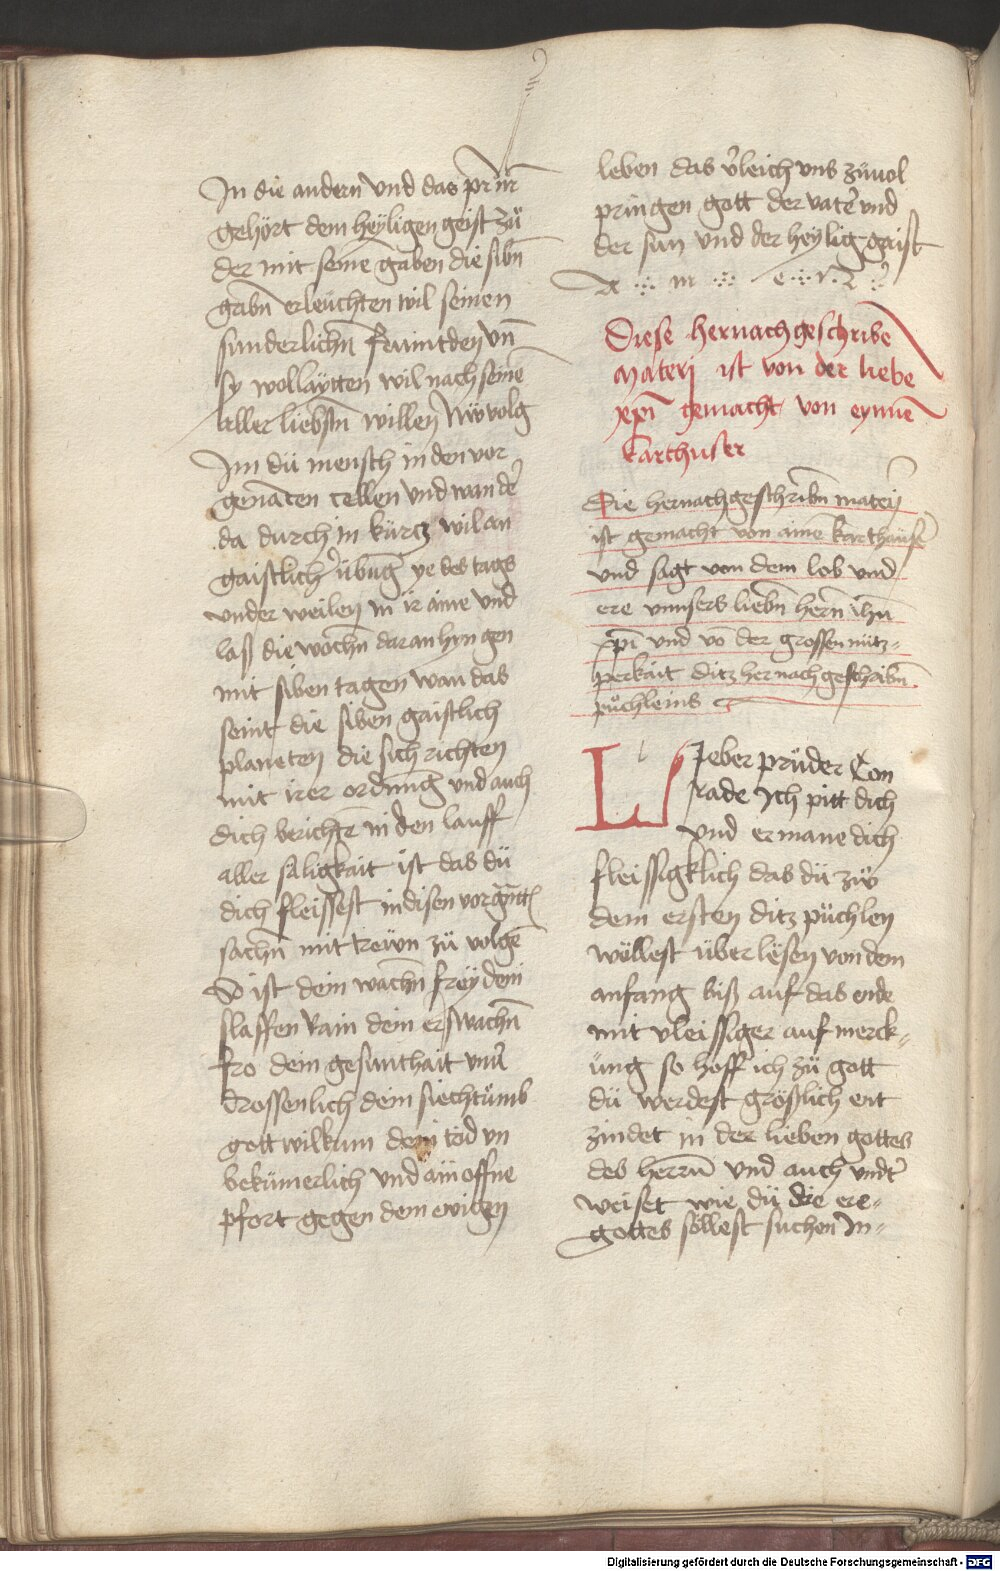 In die andern Vnd das
gehört dem heyligen geist zü
der mit seinē gaben die sibn̄
gabn̄ erleüchten wil seinen
sunderlichn̄ vn̄
sy wollaytten wil nach seinē
aller liebstn̄ willen Nw volg
Im dü mensch in den vor
genāten cellen vnd wander
da durch in kürcz wil an
gaistlicher übūg ye des tags
vnder weilen in ir aine vnd
laß die wochn̄ daran hyngen
mit siben tagen wan das
seint die siben gaistlich
planeten die sich richten
mit irer ordnūg vnd auch
dich berichtē in den lauff
aller säligkait ist das dü
dich fleissest in disen
sachn̄ mit trewn zü volgē
So ist dein wachn̄ frey dein
slaffen Rain dein erswachn̄
fro dein gesunthait vnũ
drossenlich dein siechtümb
gott wilkum dein tod vn
bekümerlich vnd ain offne
pfort gegen dem ewigen
leben das v̉leich vns zü uol
pringen gott der vater̉ vnd
der sun vnd der heylig gaist
A m e n
Diese hernach geschribē
Materj ist von der liebe
xp̄i gemacht von eynnē
karthuser
Die hernach geschribn̄ materj
ist gemacht von ainē karthäuser̉
vnd sagt von dem lob vnd
ere vnnsers liebn̄ hern̄ ih̄u
xp̄i vnd vō der grossen nütz-
perkait ditz hernach geschribn̄
püchleins
LIeber prüder Con
rade Ich pitt dich
vnd ermane dich
fleissigklich das dü zü
dem ersten ditz püchlen
wëllest über lësen von dem
anfang biß auf das ende
mit vleissiger auf merck-
üng so hoff ich zü gott
dü werdest größlich ent
zindet in der lieben gottes
des herrn̄ vnd auch vndr̉
weiset wie dü die ere-
gottes söllest suchen In-
Digitalisierung gefördert durch die Deutsche Forschungsgemeinschaft - DFG